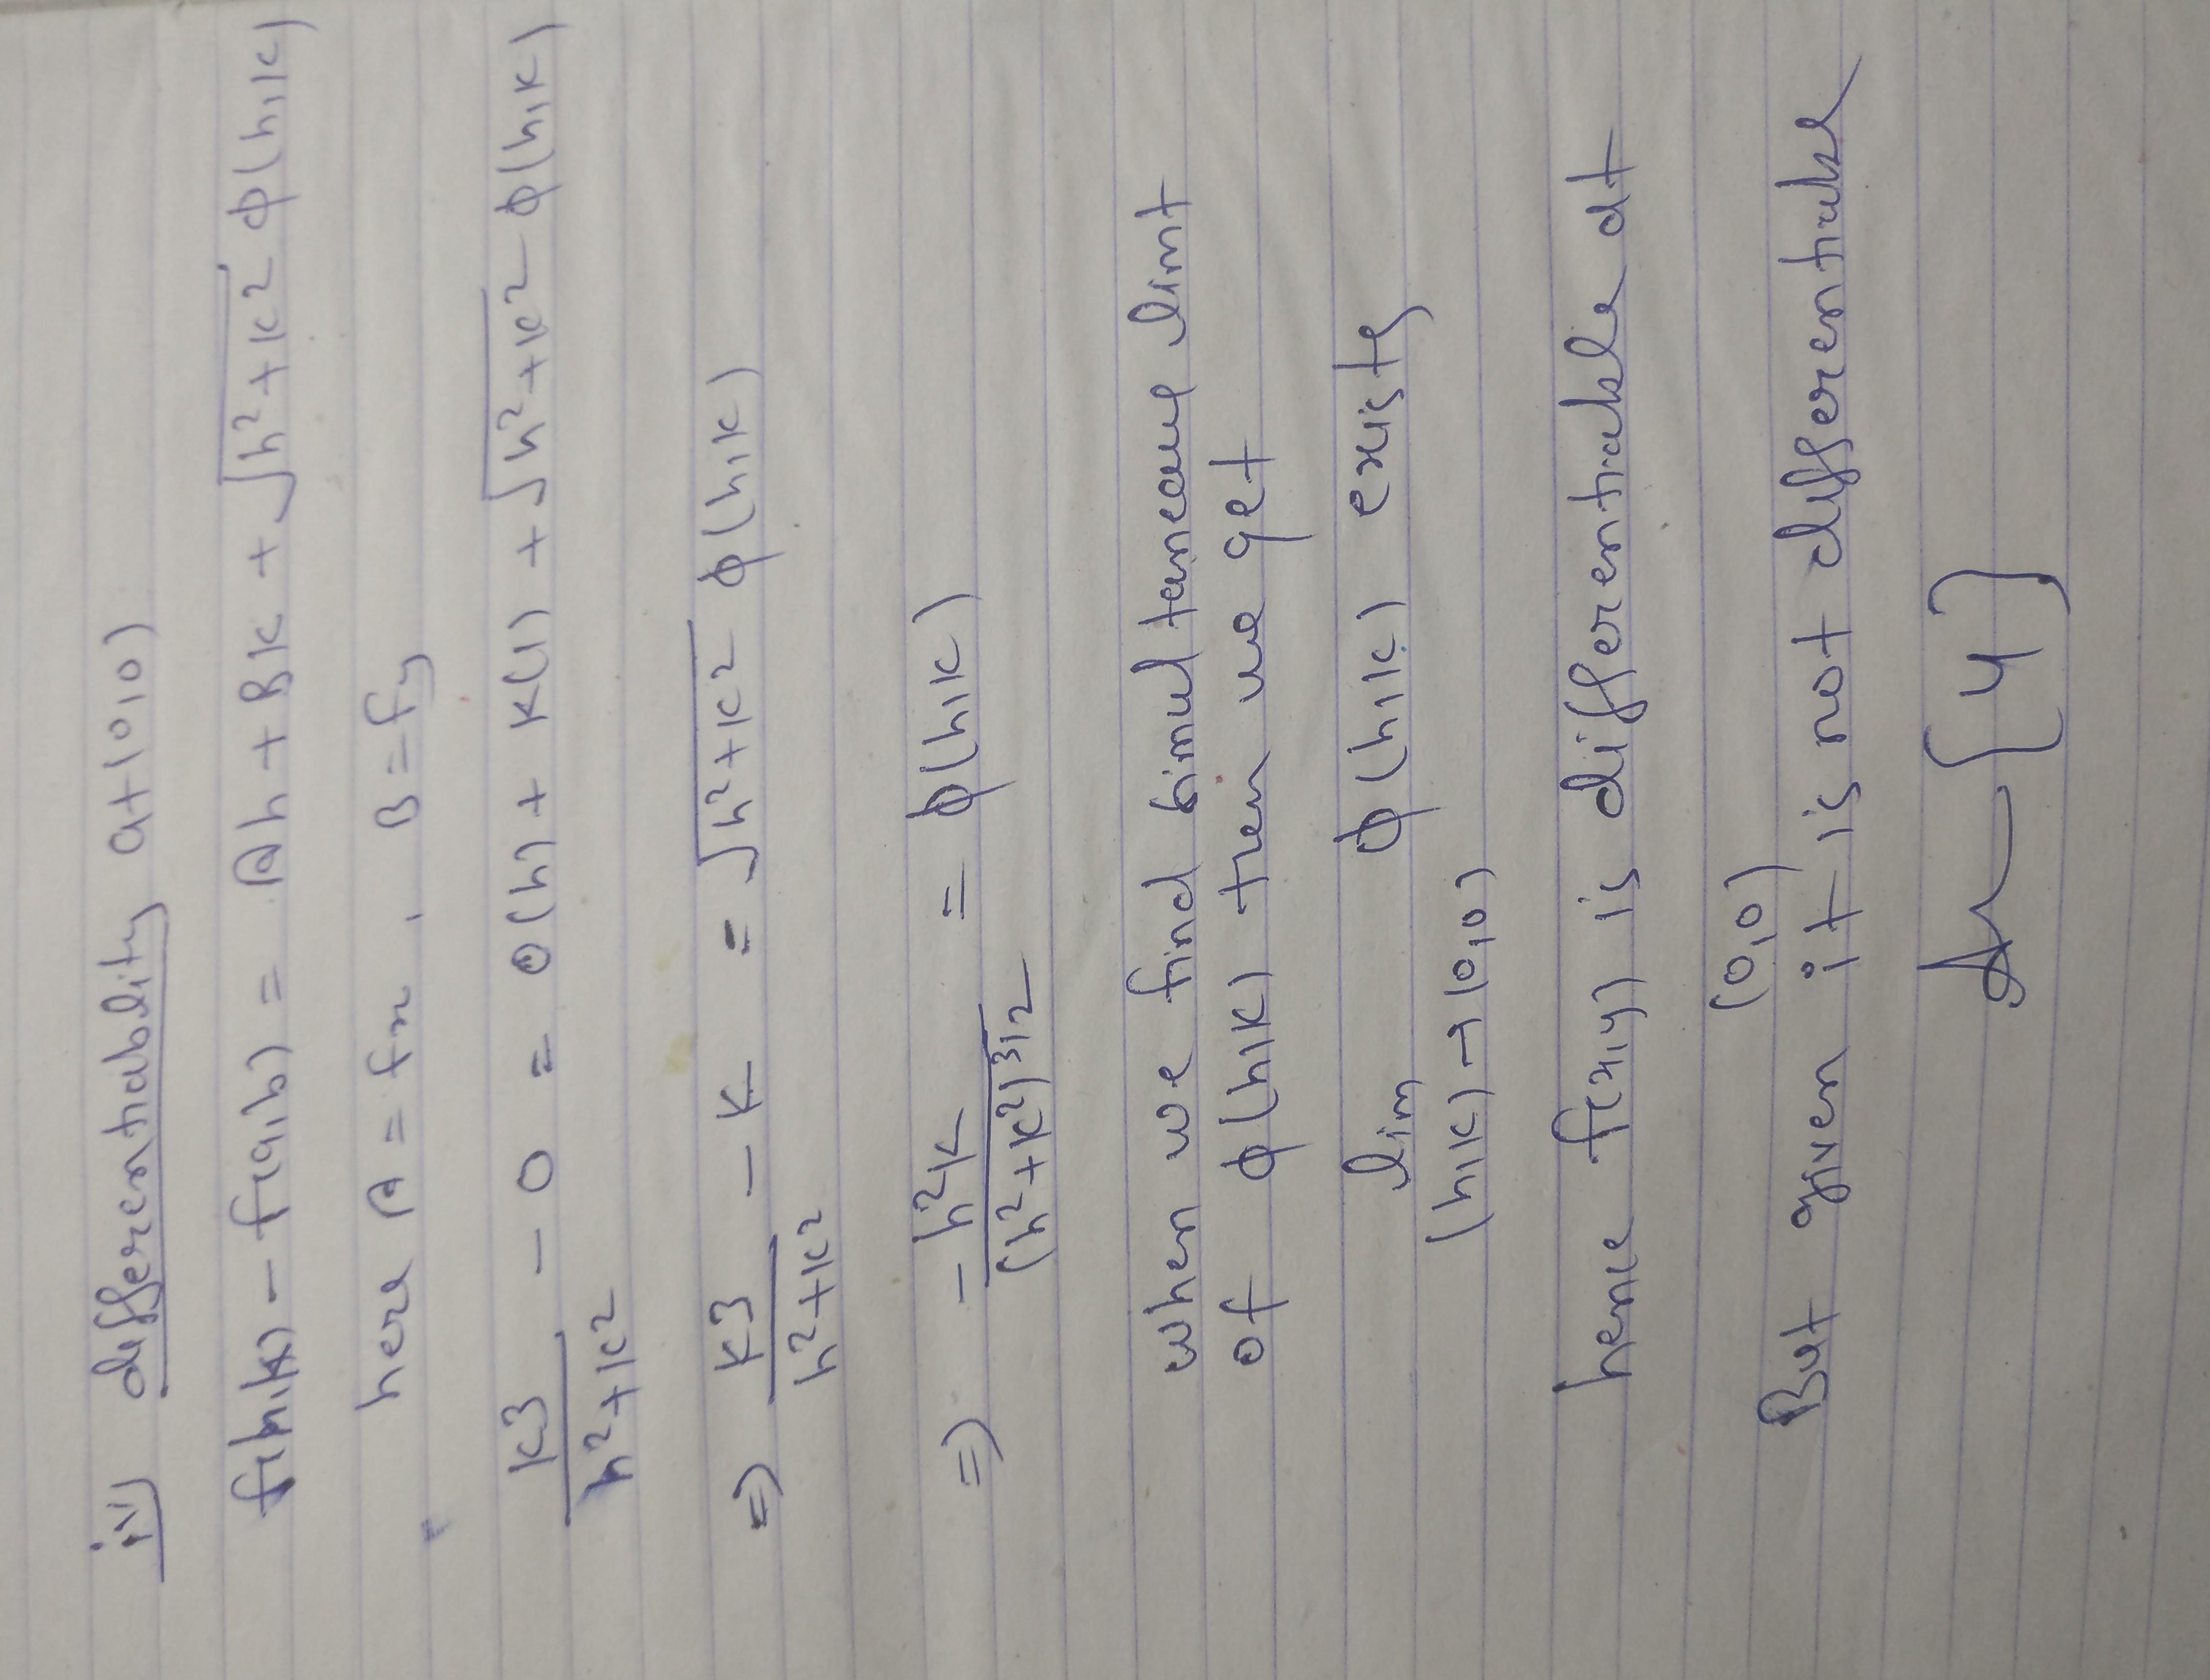 iv) differentiability at (0,0)
f(h,k) - f(a,b) = Ah + Bk + √h²+k² ϕ(h,k)
here A = fx , B = fy
k3/h²+k² - 0 = 0(h) + k(1) + √h²+k² ϕ(h,k)
⇒ k3/h²+k² - k = √h²+k² ϕ(h,k)
⇒ -h²k/(h²+k²)3/2 = ϕ(h,k)
when we find simultaneous limit
of ϕ(h,k) then we get
lim ϕ(h,k) exists
(h,k)→(0,0)
hence f(x,y) is differentiable at
(0,0)
But given it is not differentiable
[4]